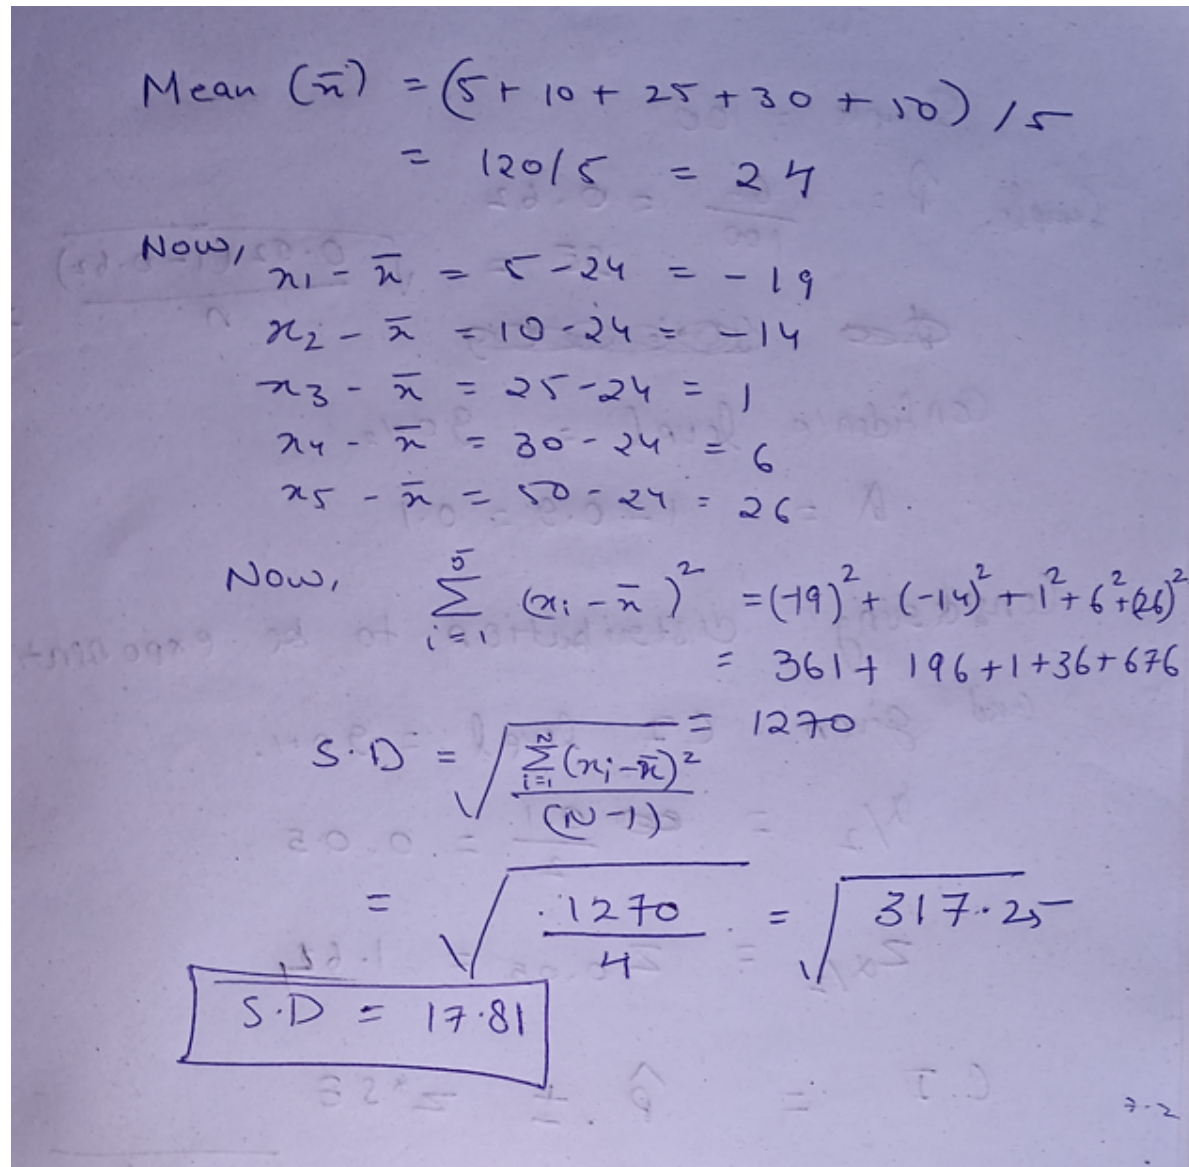 Mean (x̄) = (5 + 10 + 25 + 30 + 50) / 5
= 120/5 = 24
Now,
x1 - x̄ = 5 - 24 = -19
x2 - x̄ = 10 - 24 = -14
x3 - x̄ = 25 - 24 = 1
x4 - x̄ = 30 - 24 = 6
x5 - x̄ = 50 - 24 = 26
Now, 5 Σ i=1 (xi - x̄)² = (-19)² + (-14)² + 1² + 6² + (26)²
= 361 + 196 + 1 + 36 + 676
= 1270
S.D = √ N Σ i=1 (xi - x̄)² / (N-1)
= √ 1270 / 4 = √ 317.25
S.D = 17.81
7.2